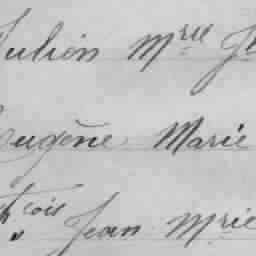 Julien Mrie J
Eugène Marie
Fcois Jean Mrie